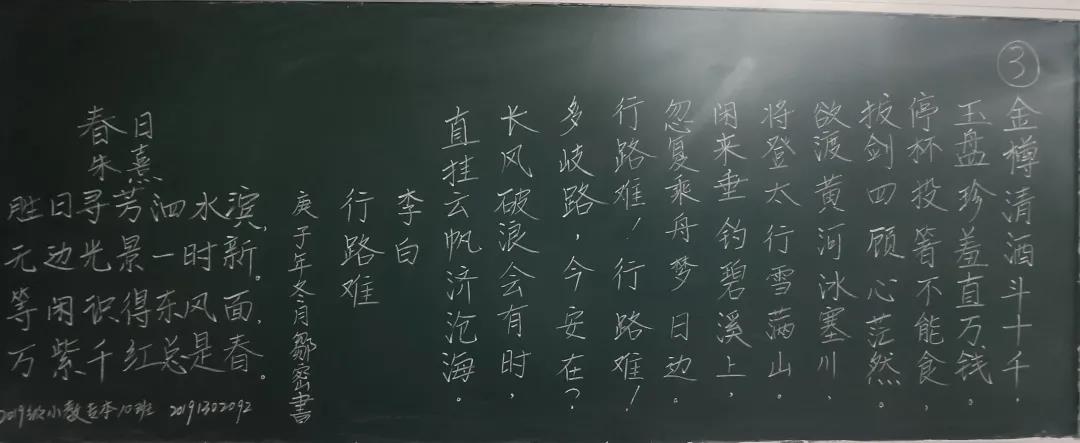 ③
金樽清酒斗十千.
玉盘珍羞直万钱。
停杯投箸不能食,
拔剑四顾心茫然。
欲渡黄河冰塞川,
将登太行雪满山。
闲来垂钓碧溪上,
忽复乘舟梦日边。
行路难!行路难!
多岐路,今安在?
长风破浪会有时,
直挂云帆济沧海。
李白
行路难
庚子年冬月邹密書
春日
朱熹
胜日寻芳泗水滨,
无边光景一时新。
等闲识得东风面,
万紫千红总是春。
2019级小教专本10班 20191302092